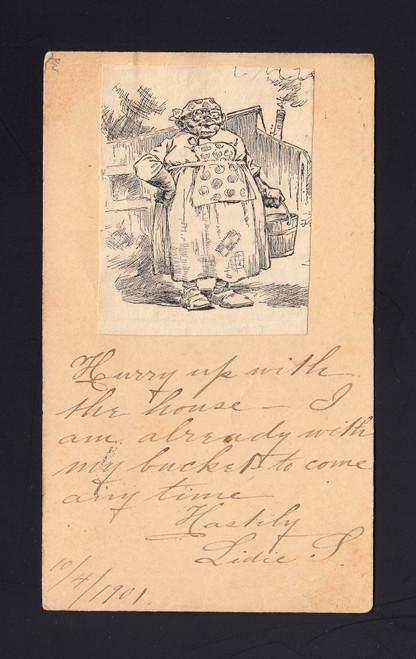 Hurry up with
the house — I
am already with
my bucket to come
any time
Hastily
Lidie S.
10/4/1901.